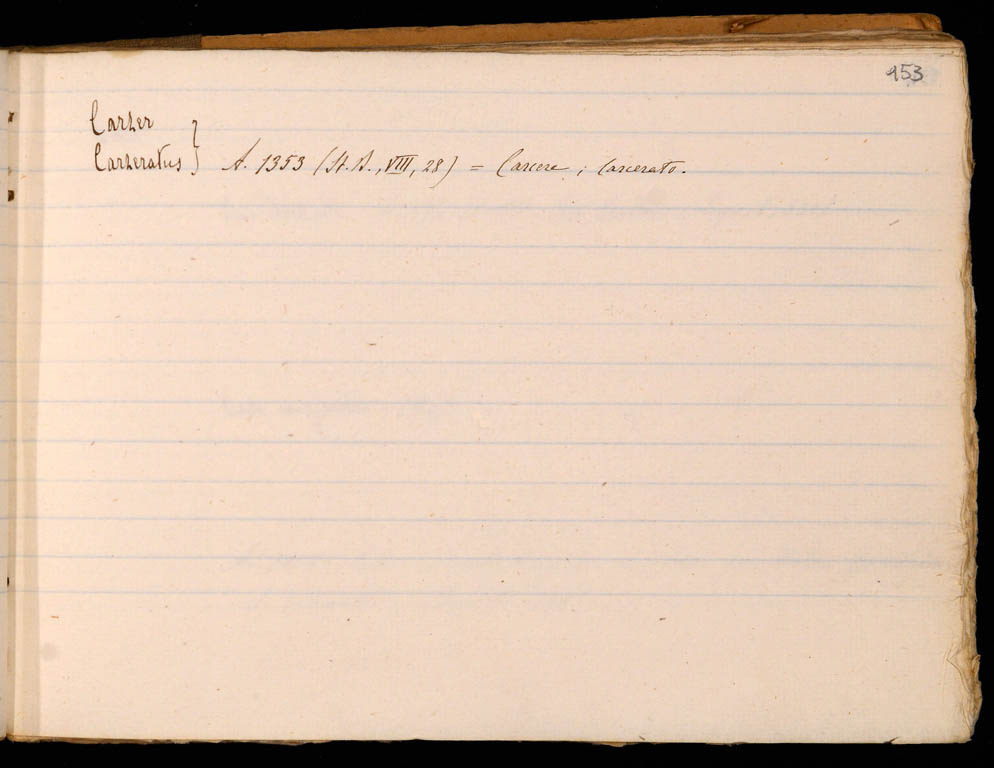 153
Carzer
Carzeratus } A. 1353 (St. B., VIII, 28) = Carcere ; carcerato.